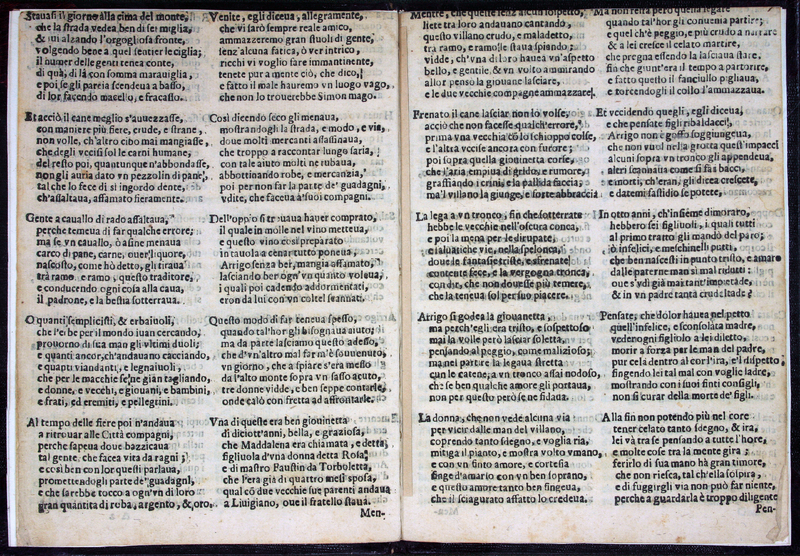 Stauasi il giorno alla cima del monte,
che la strada vedea ben di sei miglia,
& iui alzando l'orgogliosa fronte,
volgendo bene a quel sentier le ciglia;
il numer delle genti tenea conte,
di quà, di là con somma marauiglia,
e poi se gli pareia scendeua a basso,
di lor facendo macello, e fracasso.
Et acciò il cane meglio s'auuezzasse,
con maniere più fiere, crude, e strane,
non volle, ch'altro cibo mai mangiasse,
che degli vccisi sol le carni humane,
del resto poi, quantunque n'abbondasse,
non gli auria dato vn pezzolin di pane,
tal che lo fece di sì ingordo dente,
ch'assaltaua, affamato fieramente.
Gente a cauallo di rado assaltaua,
perche temeua di far qualche errore;
ma se vn cauallo, ò asine menaua
carco di pane, carne, ouer liquore,
nascosto, come hò detto, gli tiraua
trà ramo, e ramo, questo traditore,
e conducendo ogni cosa alla caua,
il padrone, e la bestia sotterraua.
O quanti semplicisti, & erbaiuoli,
che l'erbe per il mondo iuan cercando,
prouorno di sua man gli vltimi duoli;
e quanti ancor, ch'andauano cacciando,
e quanti viandanti, e legnaiuoli,
che per le macchie se ne gian tagliando,
e donne, e vecchi, e giouani, e bambini,
e frati, ed eremiti, e pellegrini.
Al tempo delle fiere poi n'andaua
a ritrouar alle Città compagni,
perche sapeua doue bazzicaua
tal gente, che facea vita da ragni;
e così ben con lor questi parlaua,
promettendogli parte de' guadagni,
e che sarebbe tocco a ogn'vn di loro
gran quantita di roba, argento, & oro.
Venite, egli diceua, allegramente,
che vi sarò sempre reale amico,
ammazzeremo gran stuoli di gente,
senz'alcuna fatica, ò ver intrico,
ricchi vi voglio fare immantinente,
tenete pur a mente ciò, che dico,
e fatto il male hauremo vn luogo vago,
che non lo trouerebbe Simon mago.
Così dicendo seco gli menaua,
mostrandogli la strada, e modo, e via,
doue molti mercanti assassinaua,
che troppo a raccontar lungo saria;
con tale aiuto molti ne rubaua,
abbottinando robe, e mercanzia,
poi per non far la parte de' guadagni,
vdite, che faceua à suoi compagni.
Dell'oppio si trouaua hauer comprato,
il quale in molle nel vino metteua,
e questo vino così preparato
in tauola a cenar tutto poneua,
Arrigo senza ber, mangia affamato,
lasciando ber ogn'vn quanto voleua,
i quali poi cadendo addormentati,
eron da lui con vn coltel scannati.
Questo modo di far teneua spesso,
quando tal'hor gli bisognaua aiuto;
ma da parte lasciamo questo adesso,
che d'vn'altro mal far m'è souuenuto,
vn giorno, che a spiare s'era messo
da l'alto monte sopra vn sasso acuto,
tre donne vidde, e ben seppe contarle,
onde calò con fretta ad affrontarle.
Vna di queste era ben giouinetta
di diciott'anni, bella, e graziosa,
che Maddalena era chiamata, e detta,
figliuola d'vna donna detta Rosa,
e di mastro Faustin da Torboletta,
che l'era già di quattro mesi sposa,
qual cò due vecchie sue parenti andaua
a Liuigiano, oue il fratello staua.
Men-
Mentre, che queste senz'alcun sospetto,
liete tra loro andauano cantando,
questo villano crudo, e maladetto,
tra ramo, e ramo le staua spiando;
vidde, ch'vna di loro hauea vn'aspetto
bello, e gentile, & vn volto ammirando
allor penso la giouane lasciare,
e le due vecchie compagne ammazzare.
Frenato il cane lasciar non lo volse,
acciò che non facesse qualch'errore,
prima vna vecchia co lo schioppo colse,
e l'altra vccise ancora con furore;
poi sopra quella giouinetta corse,
che l'aria empiua di grido, e rumore,
graffiando i crini, e la pallida faccia;
ma'l villano la giunge, e forte abbraccia
La lega a vn tronco, fin che sotterrate
hebbe le vecchie nell'oscura conca,
e poi la mena per le dirupate,
e saluatiche vie, nella spelonca,
doue in fantasie triste, e sfrenate
contente fece, e la vergogna tronca,
con dir, che non douesse più temere,
che la teneua sol per suo piacere.
Arrigo si godea la giouanetta,
ma perch'egli era tristo, e sospettoso
mai la volle però lasciar soletta,
pensando al peggio, come malizioso;
ma nel partire la legaua stretta
cun le catene, a vn tronco assai nodoso,
che se ben qualche amore gli portaua,
non per questo però se ne fidaua.
La donna, che non vede alcuna via
per vicir dalle man del villano,
coprendo tanto sdegno, e voglia ria,
mitiga il pianto, e mostra volto vmano,
e con vn finto amore, e cortesia
finge d'amario con vn ben soprano,
e questo amore tanto ben fingeua,
che il sciagurato affatto lo credeua.
Ma non resta però quella legare
quando tal'hor gli conuenia partire;
e quel ch'è peggio, e più crudo a narrare
& a lei cresce il celato martire,
che pregna essendo la lasciaua stare,
fin che giunt'era il tempo a partorire,
e fatto quello il fanciullo pigliaua,
e torcendogli il collo l'ammazzaua.
Et vccidendo quegli, egli diceua,
e che pensate figli ribaldacci,
Arrigo non è goffo soggiungeua,
che non vuol nella grotta quest'impacci
alcuni sopra vn tronco gli appendeua,
altri scannaua come si fà i bacci,
e morti, ch'eran, gli dicea crescete,
e datemi fastidio se potete.
In otto anni, ch'insieme dimoraro,
hebbero sei figliuoli, i quali tutti
al primo tratto gli mandò del paro;
ò infelici, e meschinelli putti,
che ben nascesti in punto tristo, e amaro
dalle paterne man sì mal ridutti:
oue s'vdì già mai tant'impietade,
& in vn padre tanta crudeltade?
Pensate, che dolor hauea nel petto
quell'infelice, e sconsolata madre,
vedenogni figliolo a lei diletto,
morir a forza per le man del padre,
pur cela dentro al cor l'ira, e'l dispetto
fingendo lei tal mal con voglie ladre,
mostrando con i suoi finti consigli,
non si curar della morte de' figli.
Alla fin non potendo più nel core
tener celato tanto sdegno, & ira,
lei và tra se pensando a tutte l'hore,
e molte cose tra la mente gira;
ferirlo di sua mano hà gran timore,
che non riesca, tal ch'ella sospira,
e di fuggirgli via non può far niente,
perche a guardarla è troppo diligente
Pen-